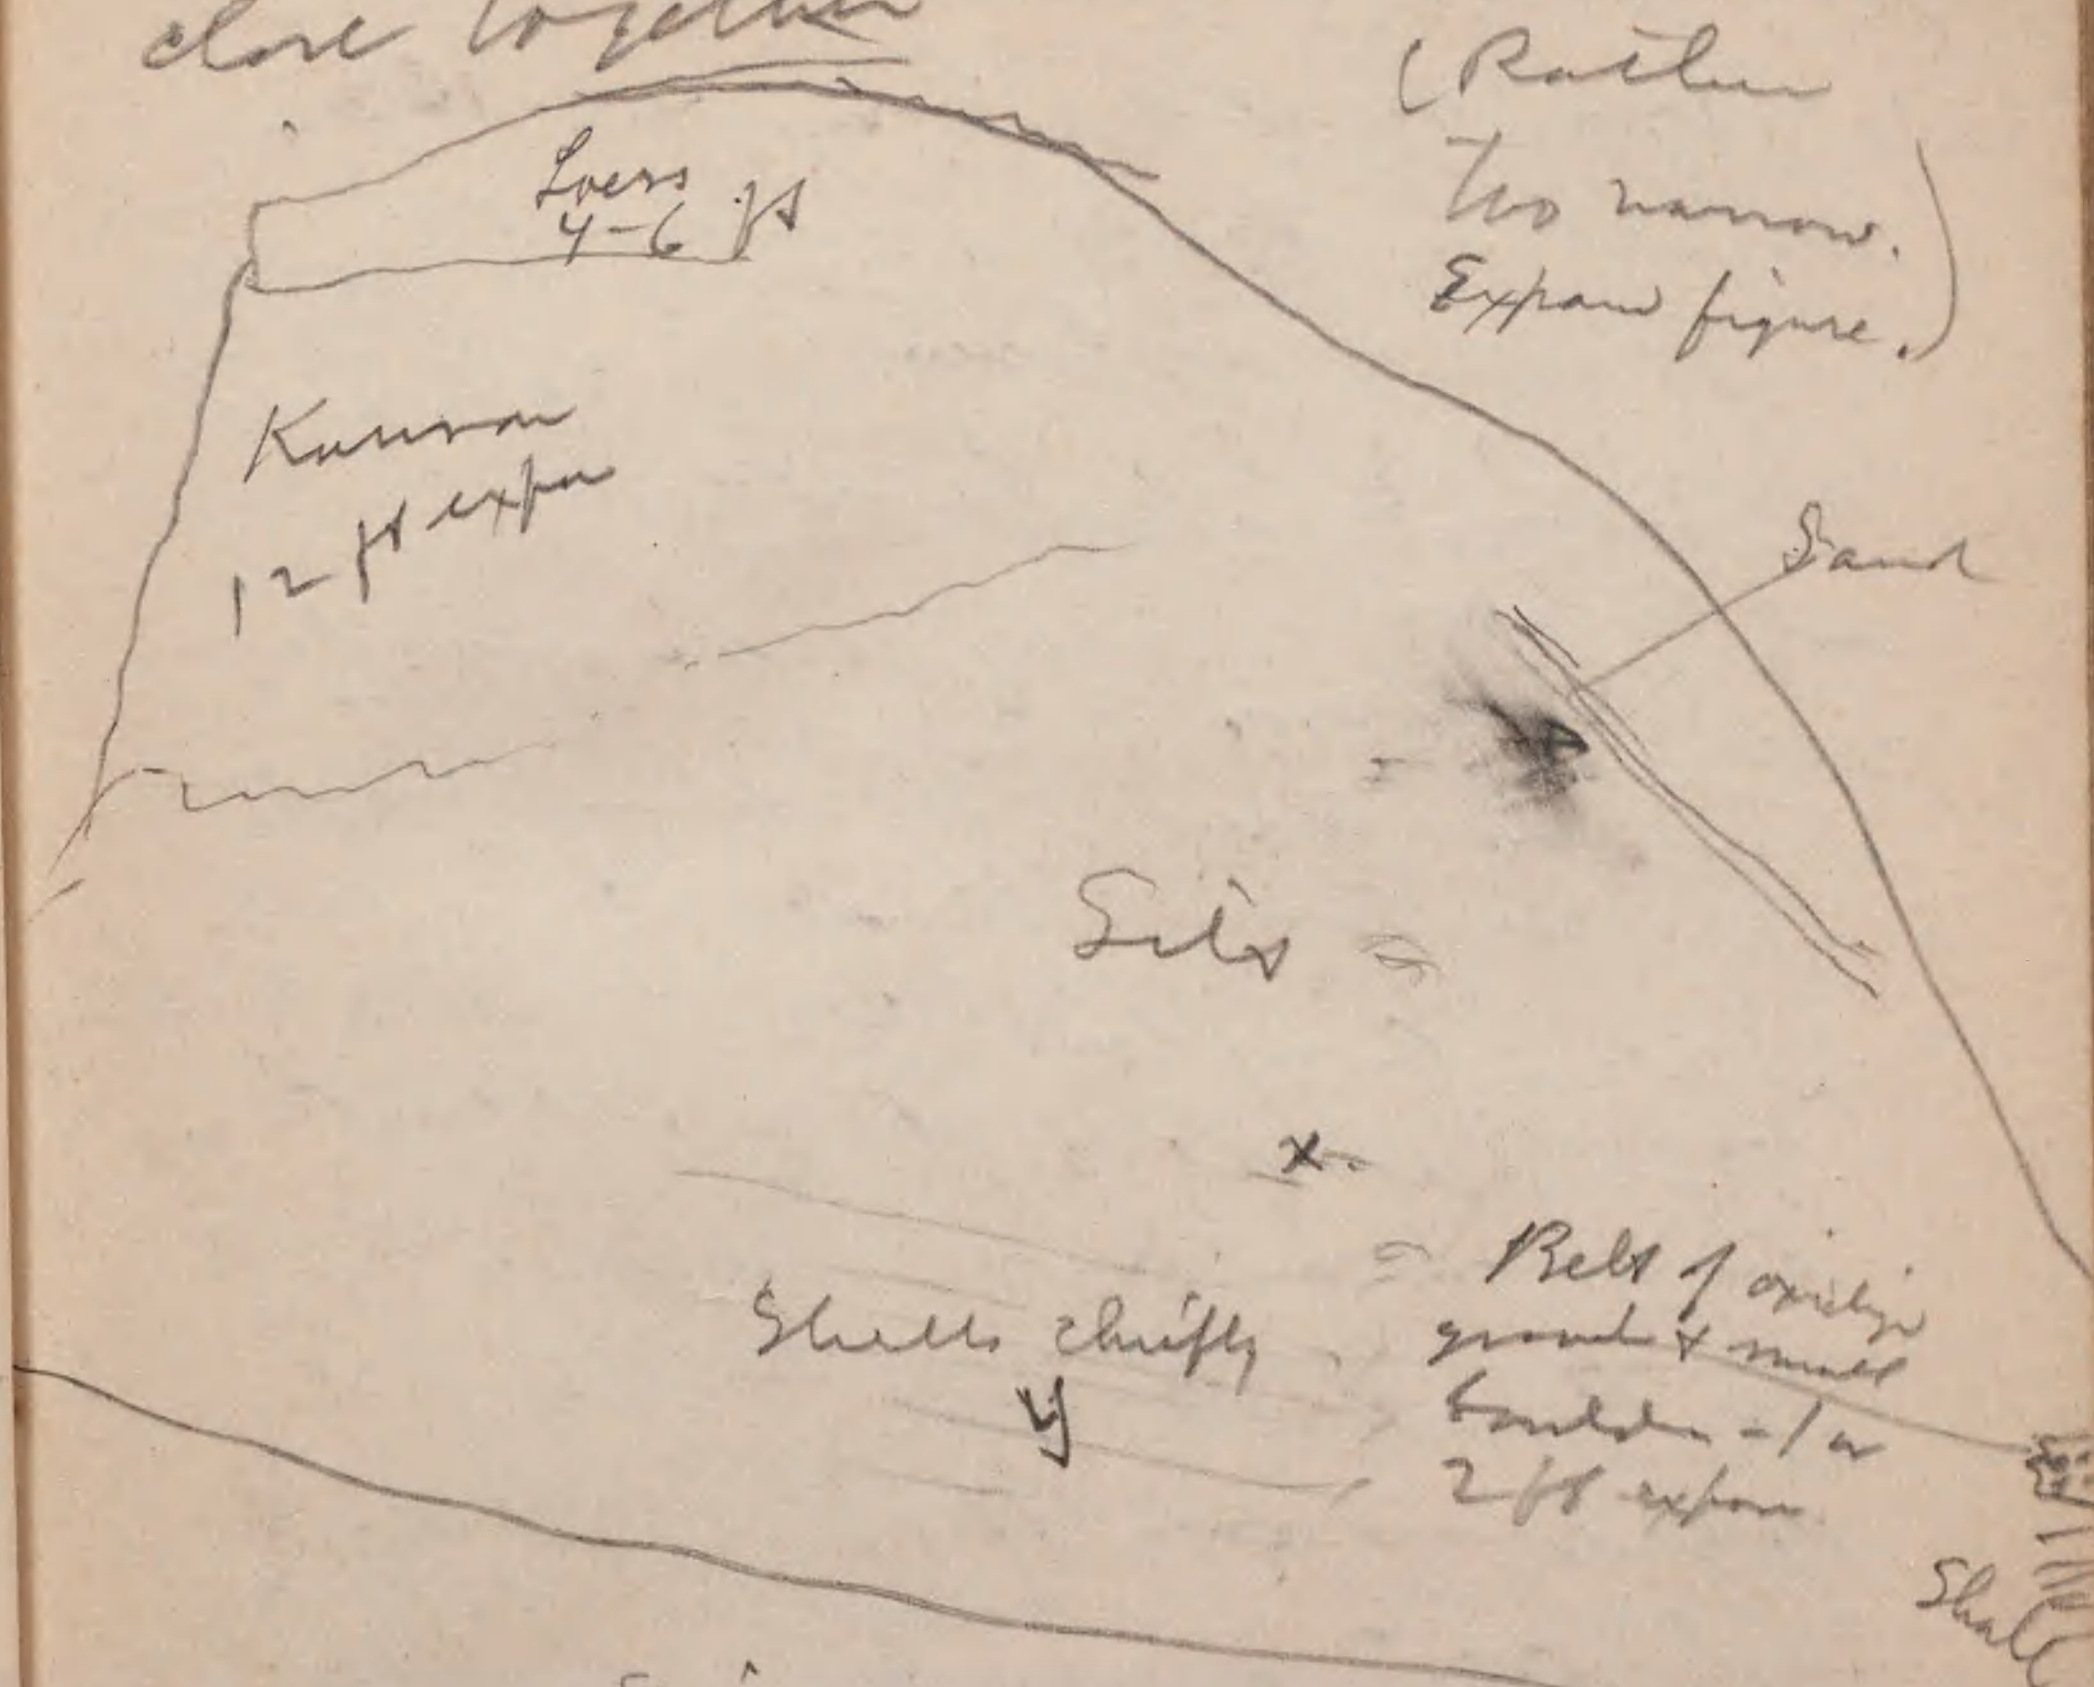 close together
(Rather
too narrow.
Expand figure.)
Loess
4-6 ft
Kansan
12 ft expo
Sand
Silt
x
Shells chiefly
y
Belt of
gravel & small
boulders - 1 or
2 ft expos
Shale